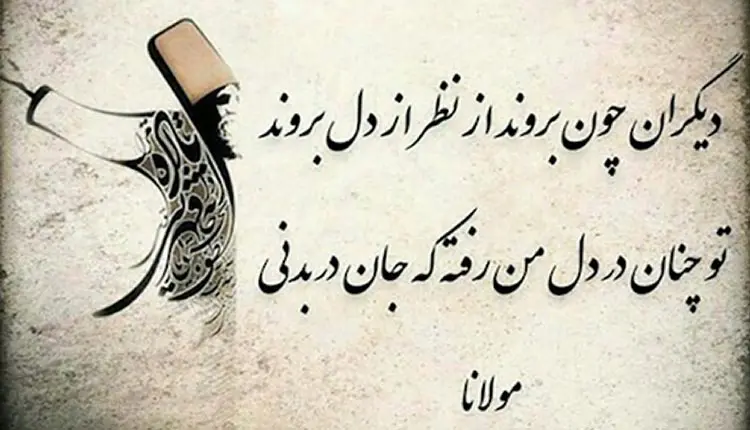 دیگران چون بروند از نظر از دل بروند
تو چنان در دل من رفته که جان در بدنی
مولانا